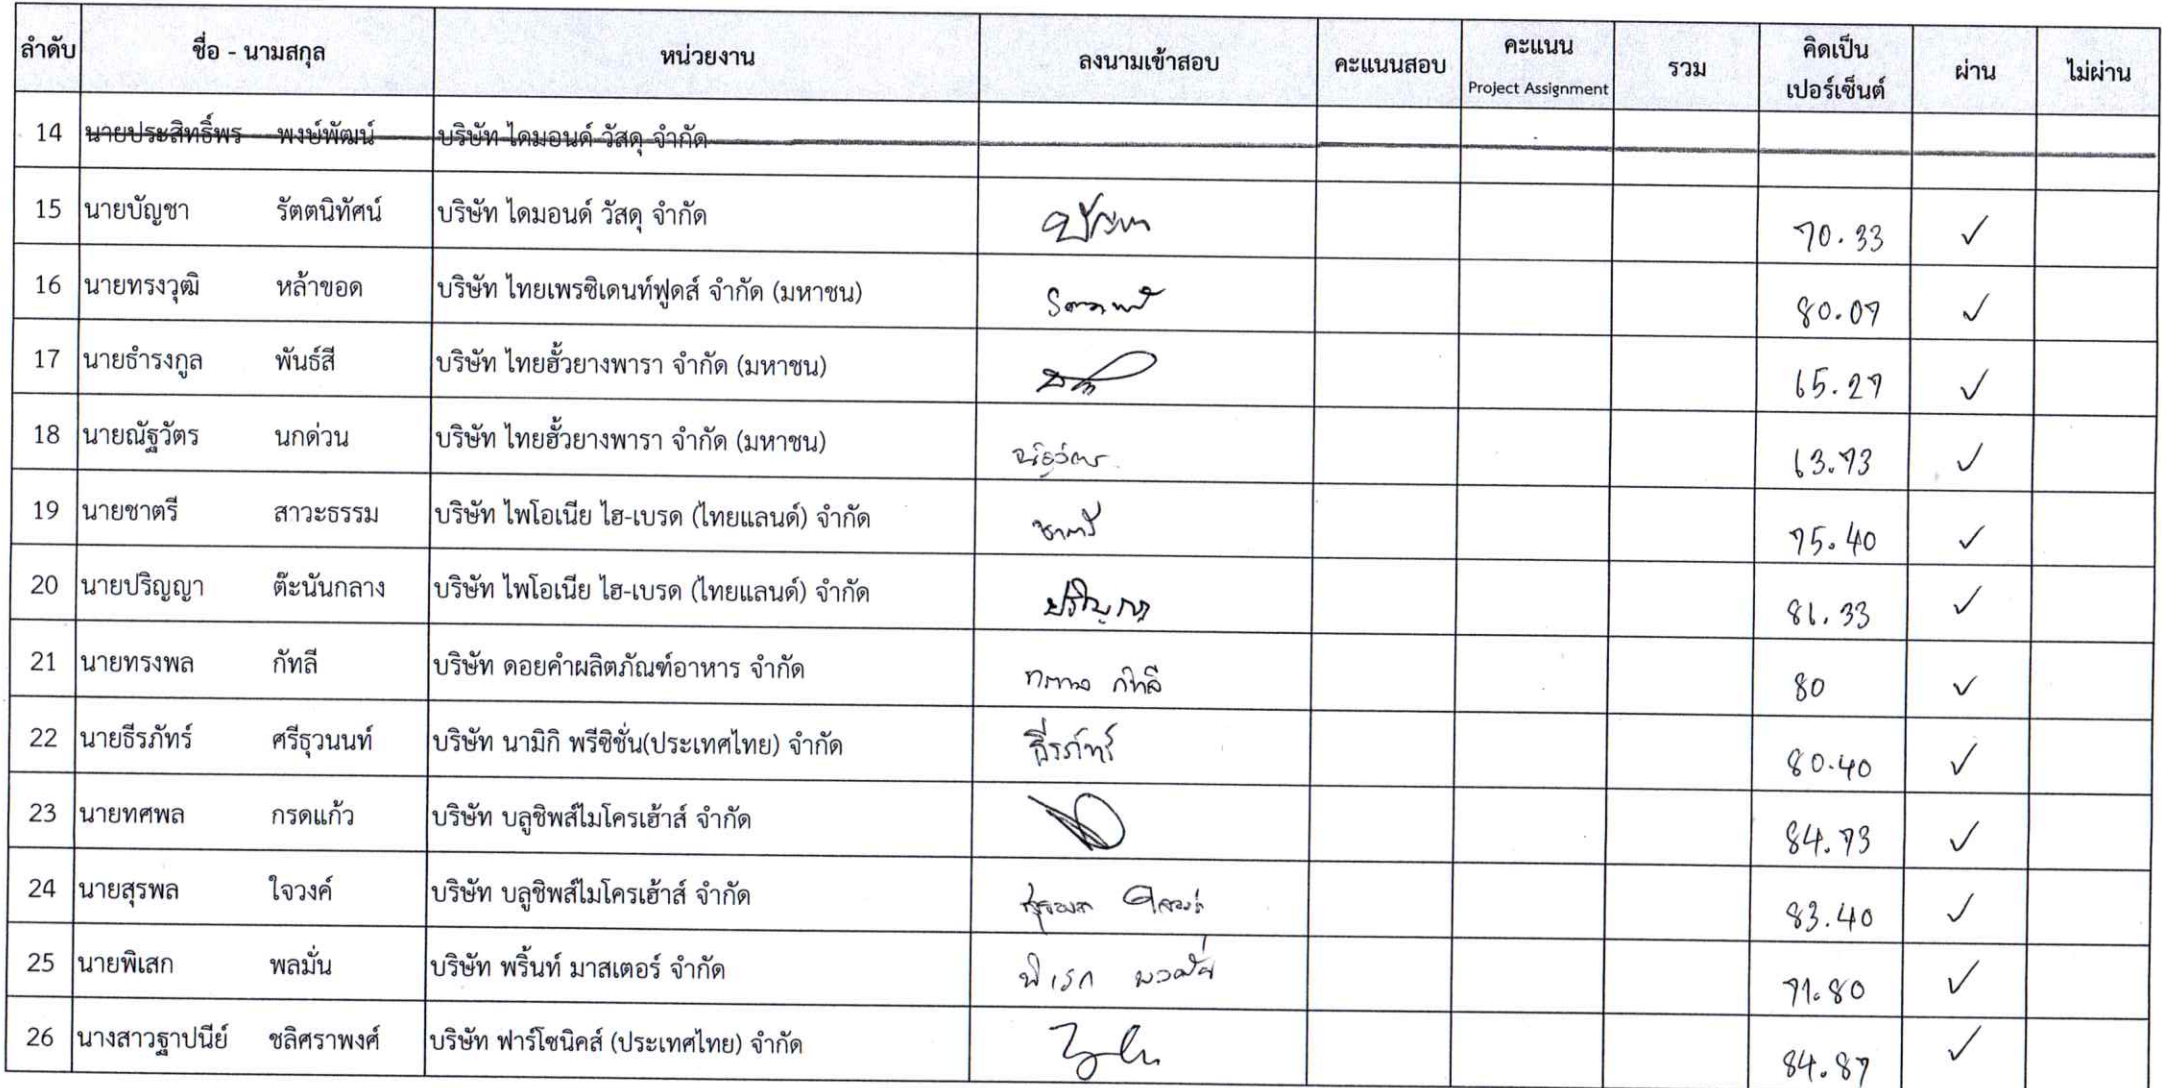 ลำดับ ชื่อ - นามสกุล หน่วยงาน ลงนามเข้าสอบ คะแนนสอบ คะแนน Project Assignment รวม คิดเป็น เปอร์เซ็นต์ ผ่าน ไม่ผ่าน
14 นายประสิทธิ์พร พงษ์พัฒน์ บริษัท ไดมอนด์ วัสดุ จำกัด
15 นายบัญชา รัตตนิทัศน์ บริษัท ไดมอนด์ วัสดุ จำกัด บัญชา 70.33 ✓
16 นายทรงวุฒิ หล้าขอด บริษัท ไทยเพรซิเดนท์ฟูดส์ จำกัด (มหาชน) 80.07 ✓
17 นายธำรงกูล พันธ์สี บริษัท ไทยฮั้วยางพารา จำกัด (มหาชน) 65.27 ✓
18 นายณัฐวัตร นกด่วน บริษัท ไทยฮั้วยางพารา จำกัด (มหาชน) ณัฐวัตร 63.73 ✓
19 นายชาตรี สาวะธรรม บริษัท ไพโอเนีย ไฮ-เบรด (ไทยแลนด์) จำกัด ชาตรี 75.40 ✓
20 นายปริญญา ต๊ะนันกลาง บริษัท ไพโอเนีย ไฮ-เบรด (ไทยแลนด์) จำกัด ปริญญา 81.33 ✓
21 นายทรงพล กัทลี บริษัท ดอยคำผลิตภัณฑ์อาหาร จำกัด ทรงพล กัทลี 80 ✓
22 นายธีรภัทร์ ศรีธุวนนท์ บริษัท นามิกิ พรีซิชั่น(ประเทศไทย) จำกัด ธีรภัทร์ 80.40 ✓
23 นายทศพล กรดแก้ว บริษัท บลูชิพส์ไมโครเฮ้าส์ จำกัด 84.73 ✓
24 นายสุรพล ใจวงค์ บริษัท บลูชิพส์ไมโครเฮ้าส์ จำกัด 83.40 ✓
25 นายพิเสก พลมั่น บริษัท พริ้นท์ มาสเตอร์ จำกัด พิเสก พลมั่น 71.80 ✓
26 นางสาวฐาปนีย์ ชลิศราพงศ์ บริษัท ฟาร์โซนิคส์ (ประเทศไทย) จำกัด 84.87 ✓